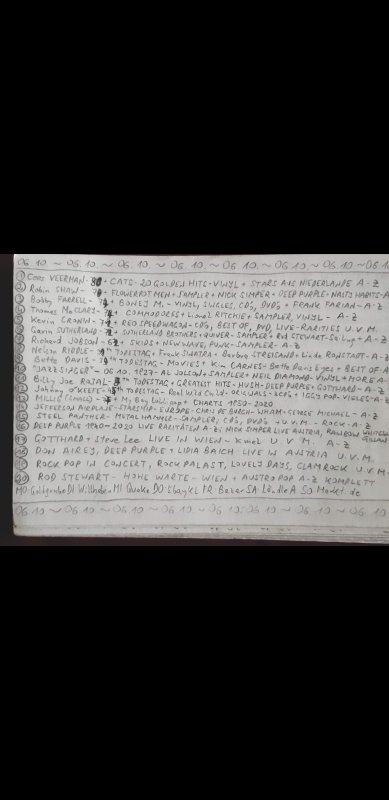 06.10.~06.10.~06.10.~06.10.~06.10.~06.10.~06.10.~06.1
① Cees VEERMAN- + CATS-20 GOLDEN HITS-VINYL + STARS AUS NIEDERLANDE A-Z
② Robin SHAW- + FLOWERPOT MEN + SAMPLER + NICK SIMPER + DEEP PURPLE- NASTY HABITS-A
③ Bobby FARRELL- + BONEY M.-VINYL, SINGLES, CDS, DVDS + FRANK FARIAN-A-Z
④ Thomas McCLARY- + COMMODORES + Lionel RITCHIE + SAMPLER, VINYL-A-Z
⑤ Kevin CRONIN- + REO SPEEDWAGON-CDS, BEST OF, DVD, LIVE-RARITIES U.V.M.
⑥ Gavin SUTHERLAND- + SUTHERLAND BROTHERS + QUIVER-SAMPLER + Rod STEWART-Sailing-A-Z
⑦ Richard JOBSON- + SKIDS + NEW WAVE, PUNK-SAMPLER-A-Z
⑧ Nelson RIDDLE- TODESTAG + Frank SINATRA + Barbra STREISAND + Linda RONSTADT-A-Z
⑨ Bette DAVIS- TODESTAG-MOVIES + Kim CARNES-Bette Davis Eyes + BEST OF-A
⑩ "JAZZSINGER"-06.10.1927-AL JOLSON + SAMPLER + NEIL DIAMOND-VINYL + MORE A
⑪ Billy Joe ROYAL- TODESTAG + GREATEST HITS-HUSH-DEEP PURPLE + GOTTHARD-A-Z
⑫ Johnny O'KEEFE- TODESTAG-Real Wild Child-ORIGINALS-CDS + IGGY POP-VIELES A-Z
⑬ MILLIE (SMALL)- + My Boy Lollipop + CHARTS 1950-2020
⑭ JEFFERSON AIRPLANE-STARSHIP-EUROPE-CHRIS DE BURGH-WHAM-GEORGE MICHAEL-A-Z
⑮ STEEL PANTHER-METAL HAMMER-SAMPLER, CDS, DVDS + U.V.M.-ROCK-A-Z
⑯ DEEP PURPLE LIVE RARITÄTEN A-Z: NICK SIMPER LIVE AUSTRIA, RAINBOW, WHITESNAKE, GILLAN
⑰ GOTTHARD + Steve Lee LIVE IN WIEN U V M. A-Z
⑱ DON AIREY, DEEP PURPLE + LIDIA BAICH LIVE IN AUSTRIA U.V.M.
⑲ ROCK POP IN CONCERT, ROCKPALAST, LOVELY DAYS, GLAMROCK U.V.M.
⑳ ROD STEWART-HOHE WARTE-WIEN + AUSTROPOP A-Z KOMPLETT
MO Goldgrube DI Willhaben MI Quoka DO Ebaykl FR Bazar SA Ländle A SO Markt.de
06.10.~06.10.~06.10.~06.10.~06.10.~06.10.~06.10